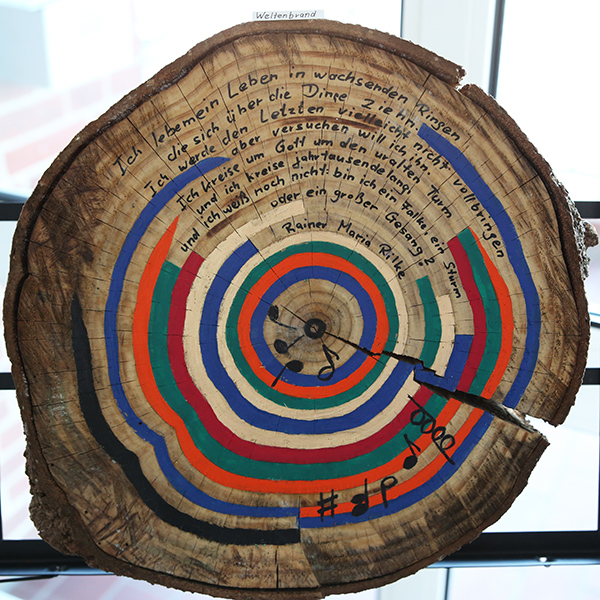 Weltenbrand
Ich lebe mein Leben in wachsenden Ringen
die sich über die Dinge ziehn.
Ich werde den Letzten vielleicht nicht vollbringen
aber versuchen will ich ihn.
Ich kreise um Gott um den uralten Turm
und ich kreise jahrtausendelang;
und ich weiß noch nicht: bin ich ein Falke, ein Sturm
oder ein großer Gesang?
Rainer Maria Rilke